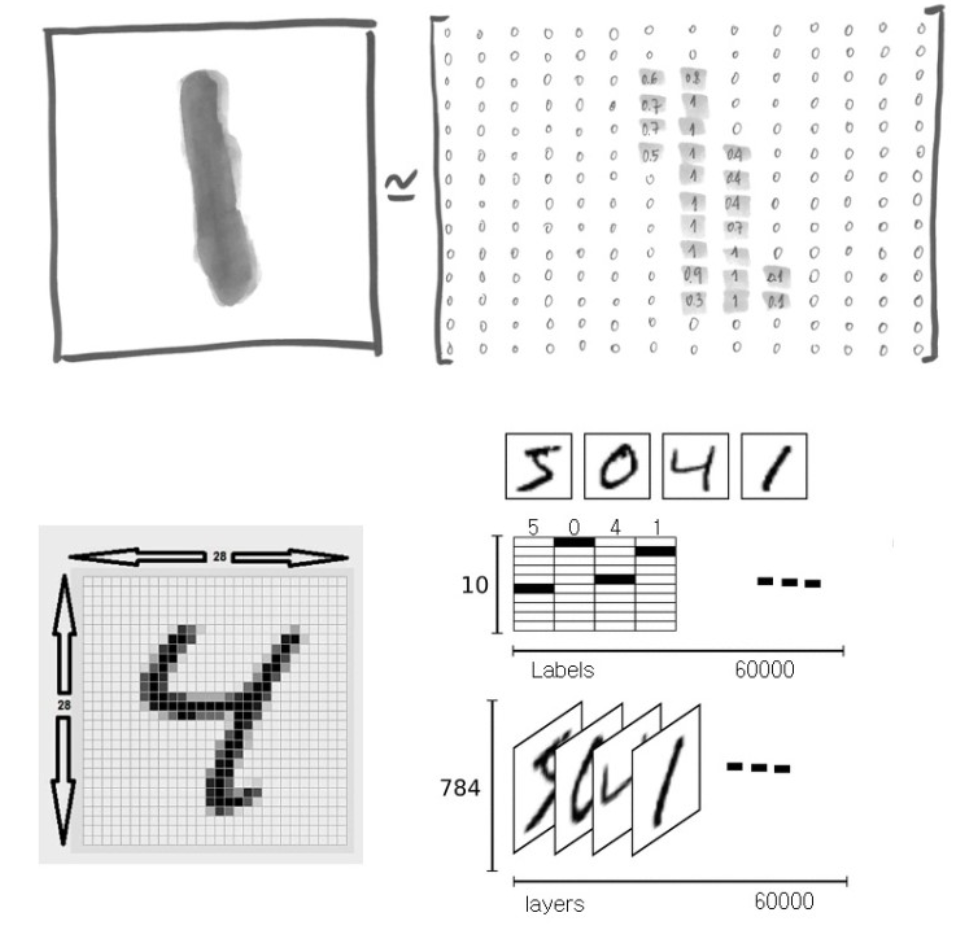 0 0 0 0 0 0 0 0 0 0 0 0 0 0
0 0 0 0 0 0 0 0 0 0 0 0 0 0
0 0 0 0 0 0 0.6 0.8 0 0 0 0 0 0
≃
0 0 0 0 0 0 0.7 1 0 0 0 0 0 0
0 0 0 0 0 0 0.7 1 0 0 0 0 0 0
0 0 0 0 0 0 0.5 1 0.4 0 0 0 0 0
0 0 0 0 0 0 0 1 0.4 0 0 0 0 0
0 0 0 0 0 0 0 1 0.4 0 0 0 0 0
0 0 0 0 0 0 0 1 0.7 0 0 0 0 0
0 0 0 0 0 0 0 1 1 0 0 0 0 0
0 0 0 0 0 0 0 0.9 1 0.1 0 0 0 0
0 0 0 0 0 0 0 0.3 1 0.1 0 0 0 0
0 0 0 0 0 0 0 0 0 0 0 0 0 0
0 0 0 0 0 0 0 0 0 0 0 0 0 0
28
28
4
5 0 4 1
5 0 4 1
10
Labels 60000
784
5 0 4 1
layers 60000